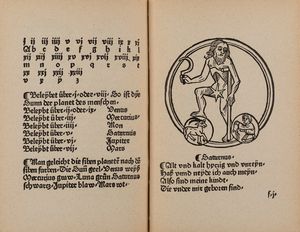 j ij iij iiij v vj vij viij ix x xj
A b c d e f g h i k l
xij xiij xiiij xv xvj xvij xviij xix
m n o p q r s t
xx xxj xxij xxiij
v x y z
Beleÿbet über · j · oder · viij · So ist die
Sunn der planet des menschen
Beleÿbet über · ij · Venus
Beleÿbet über · iij · Mercurius
Beleÿbet über · iiij · Mon
Beleÿbet über · v · Saturnus
Beleÿbet über · vj · Jupiter
Beleÿbet über · vij · Mars
Man geleicht die siben planeten nach den
siben farben · Die Sunn Geel · Venus weÿß
Mercurius graw · Luna grün Saturnus
schwartz · Jupiter blaw · Mars rot ·
Saturnus
Alt vnd kalt bin ich vnd vnreÿn
Haß vnd neÿde ich auch meÿn
Also sind meine kinde
Die vnder mir geboren sind